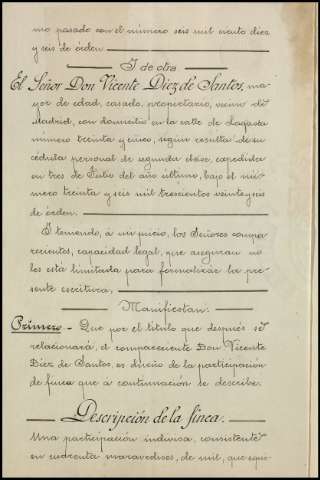 mo pasado con el número seis mil ciento diez
y seis de orden
Y de otra
El Señor Don Vicente Diez de Santos, ma-
yor de edad, casado, propietario, vecino de
Madrid, con domicilio en la calle de Sagasta
número treinta y cinco, según resulta de su
cédula personal de segunda clase, expedida
en tres de Julio del año último, bajo el nú-
mero treinta y seis mil trescientos veintiseis
de orden.
Y teniendo, á mi juicio, los Señores compa-
recientes, capacidad legal, que aseguran no
les está limitada para formalizar la pre-
sente escritura,
Manifiestan:
Primero - Que por el título que después se
relacionará, el compareciente Don Vicente
Diez de Santos, es dueño de la participación
de finca que á continuación se describe.
Descripción de la finca.
Una participación indivisa, consistente
en cuarenta maravedises, de mil, que equi-